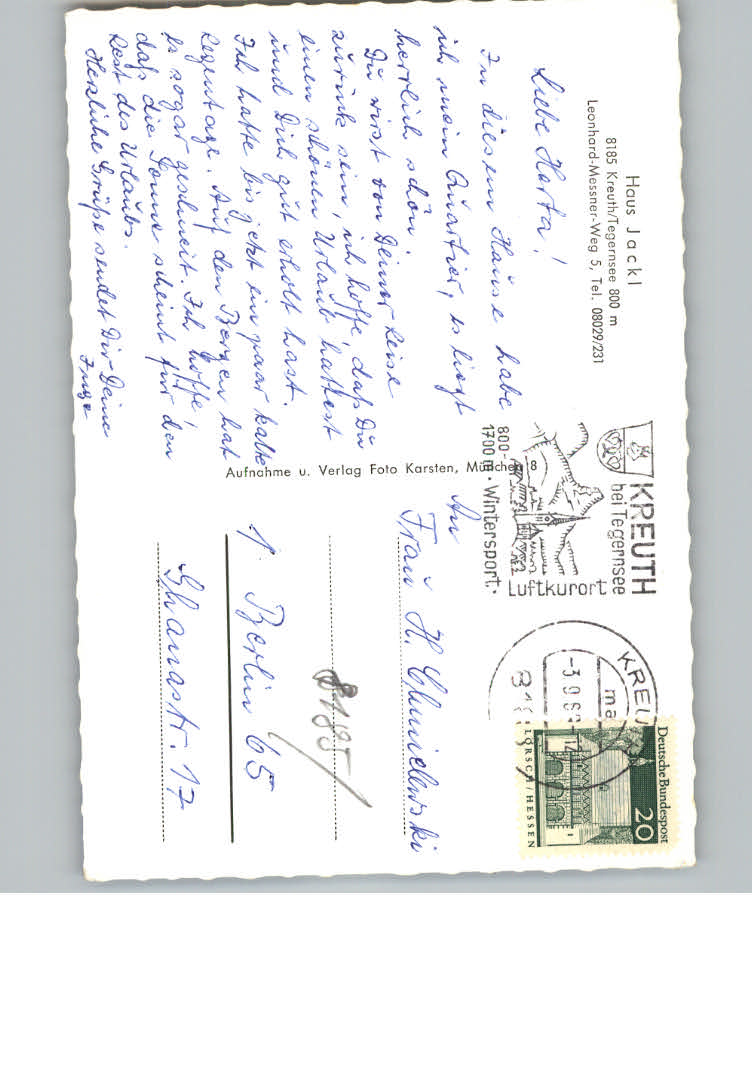 Haus Jackl
8185 Kreuth/Tegernsee 800 m
Leonhard-Messner-Weg 5, Tel. 08029/231
Liebe Herta!
In diesem Hause habe
ich mein Quartier, es liegt
herrlich schön.
Du wirst von Deiner Reise
zurück sein, ich hoffe, daß Du
einen schönen Urlaub hattest
und Dich gut erholt hast.
Ich hatte bis jetzt ein paar kalte
Regentage. Auf den Bergen hat
es sogar geschneit. Ich hoffe,
daß die Sonne scheint für den
Rest des Urlaubs.
Herzliche Grüße sendet Dir Deine
Inge
Aufnahme u. Verlag Foto Karsten, München 8
KREUTH
bei Tegernsee
Luftkurort
800-
1700 m · Wintersport ·
KREU
-3.9.6
12
81
Deutsche Bundespost
20
LORSCH / HESSEN
An
Frau H. Chmielewski
8185
1 Berlin 65
Ghanastr. 17